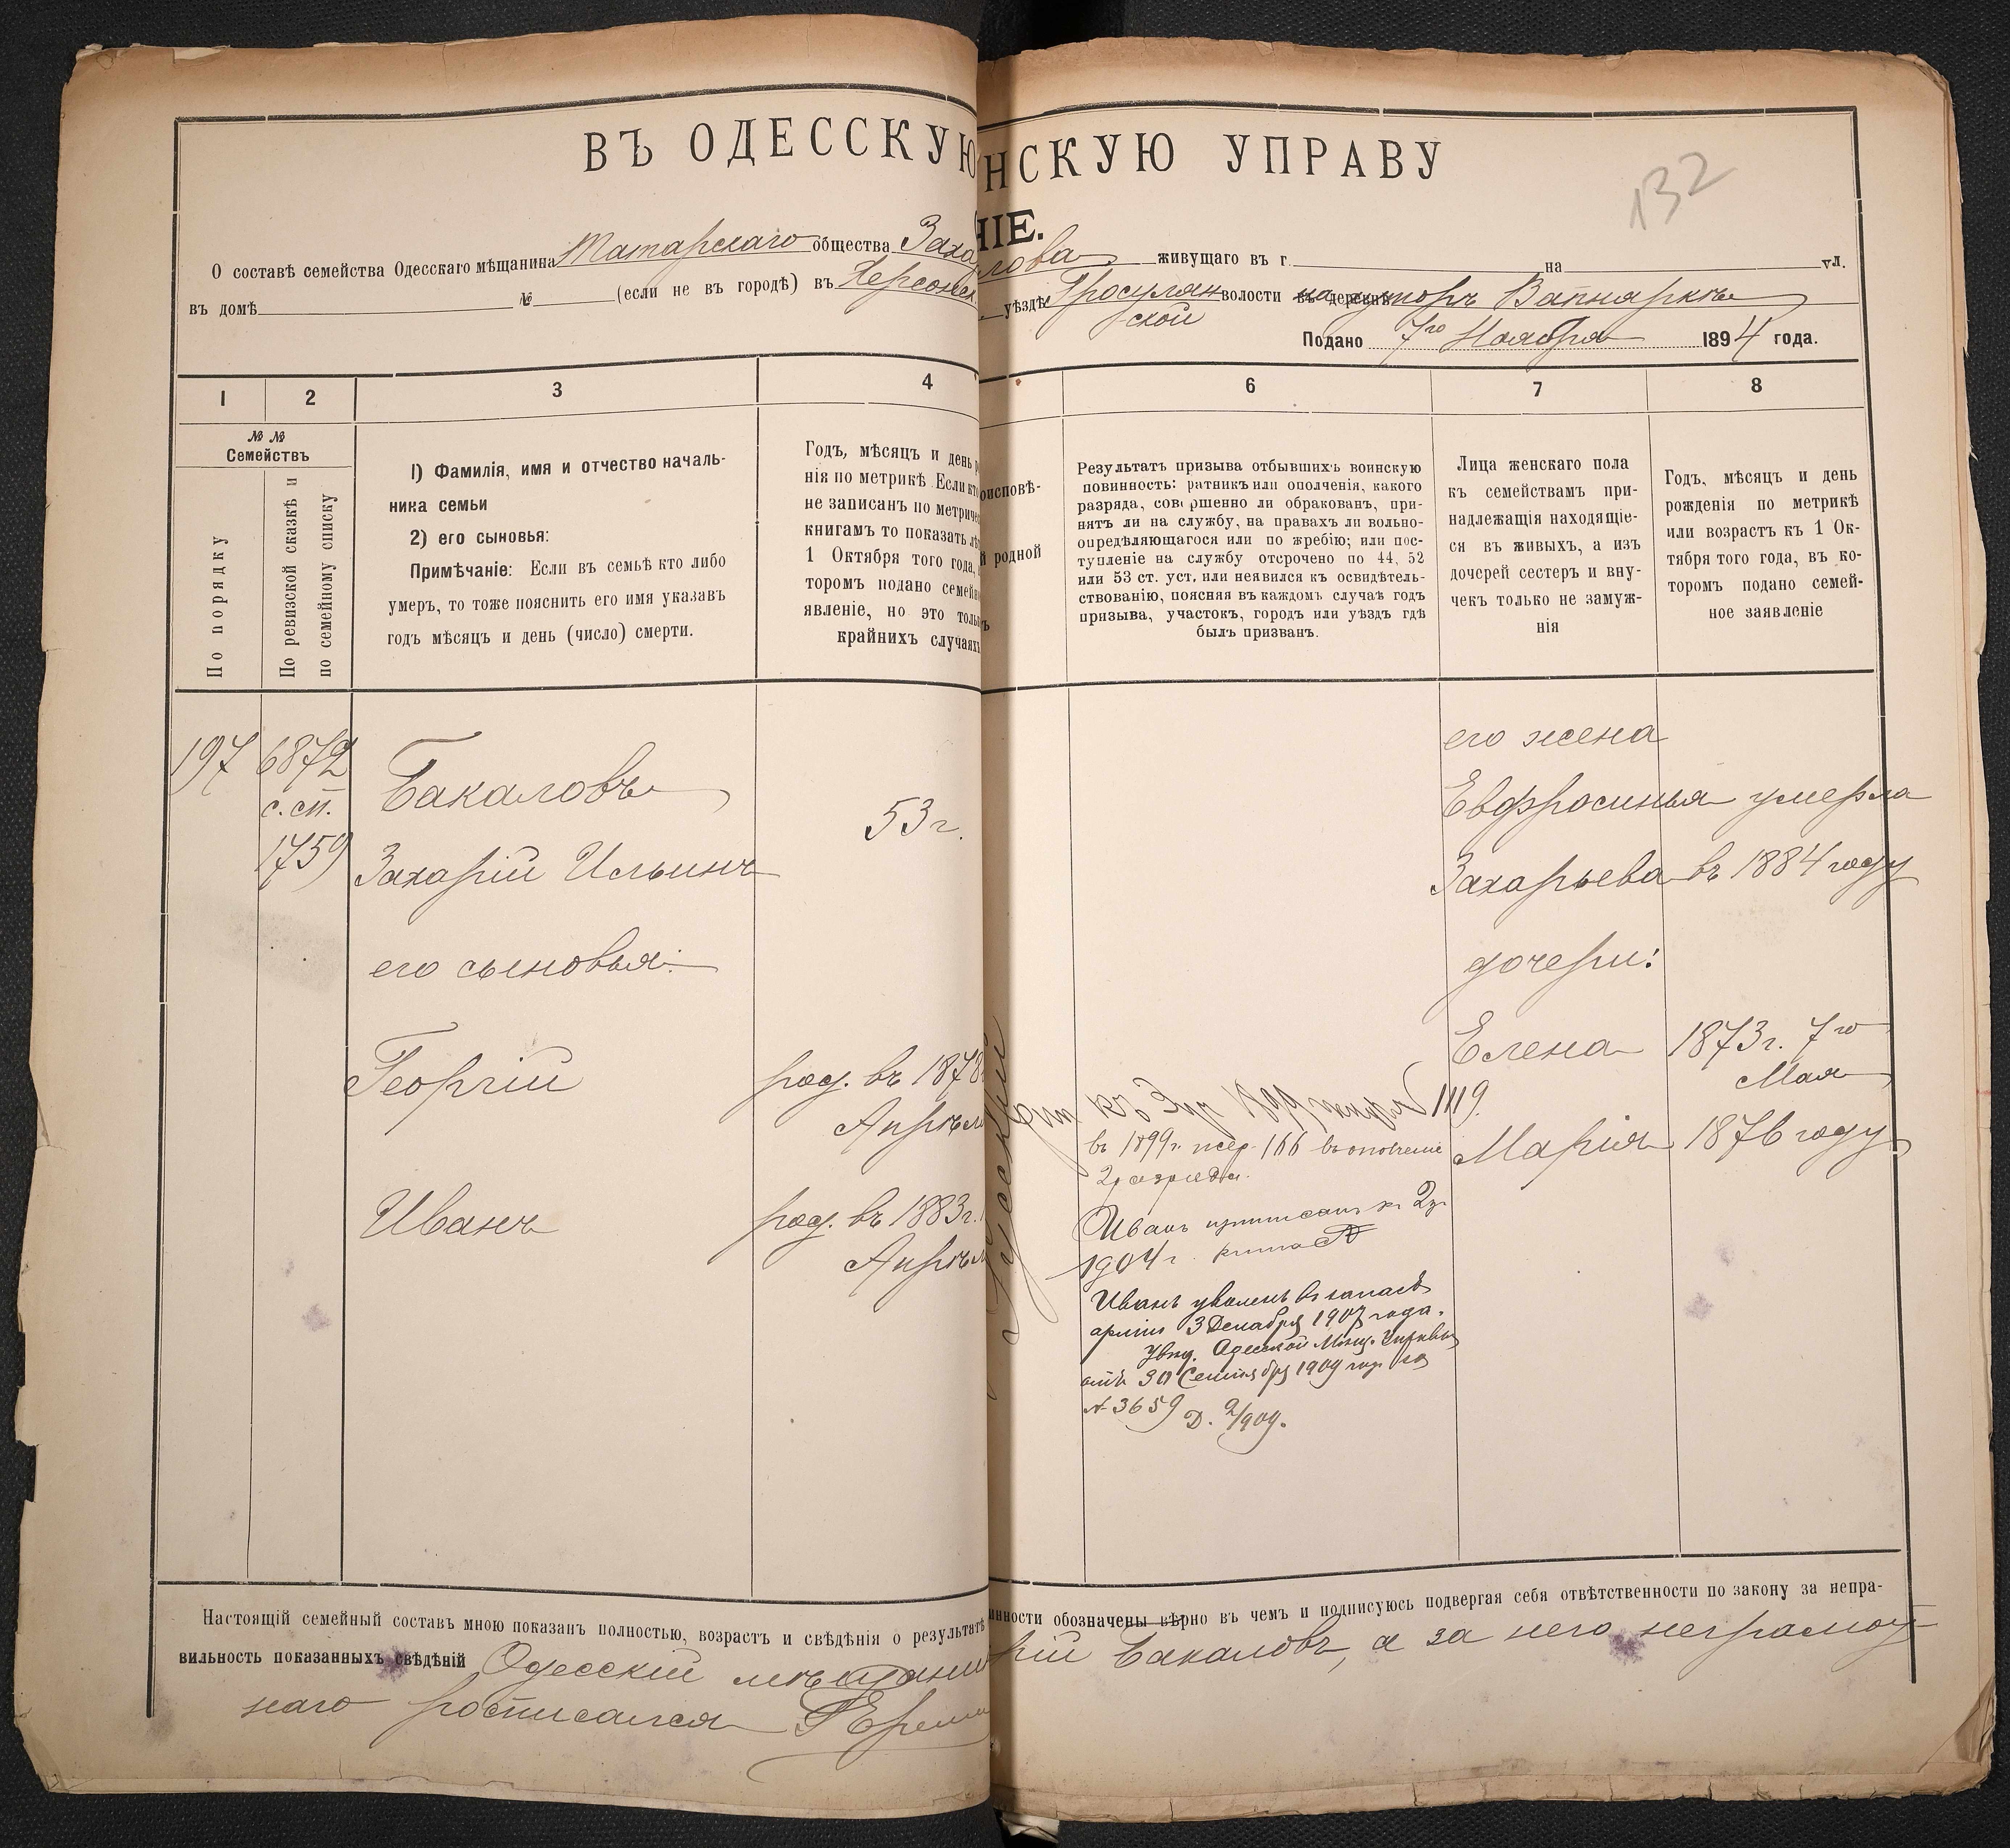 ВЪ ОДЕССКУЮ
НСКУЮ УПРАВУ
132
НІЕ.
О составѣ семейства Одесскаго мѣщанина Татарскаго общества Заха
лова живущаго въ г. на ул.
въ домѣ № (если не въ городѣ) въ Херсонск.
уѣздѣ Гросулян
ской волости въ деревнѣ на хуторѣ Вапняркѣ
Подано 7го Ноября 1894 года.
1 2 3 4 6 7 8
№ №
Семействъ
По порядку
По ревизской сказкѣ и
по семейному списку
1) Фамилія, имя и отчество началь-
ника семьи
2) его сыновья:
Примѣчаніе: Если въ семьѣ кто либо
умеръ, то тоже пояснить его имя указавъ
годъ мѣсяцъ и день (число) смерти.
Годъ, мѣсяцъ и день р
нія по метрикѣ. Если кто
не записанъ по метриче
книгамъ то показать лѣ
1 Октября того года,
торомъ подано семей
явленіе, но это толь
крайнихъ случаяхъ
оисповѣ-
й родной
ъ
Результатъ призыва отбывшихъ воинскую
повинность: ратникъ или ополченія, какого
разряда, совершенно ли обракованъ, при-
нятъ ли на службу, на правахъ ли вольно-
опредѣляющагося или по жребію; или пос-
тупленіе на службу отсрочено по 44, 52
или 53 ст. уст. или неявился къ освидѣтель-
ствованію, поясняя въ каждомъ случаѣ годъ
призыва, участокъ, городъ или уѣздъ гдѣ
былъ призванъ.
Лица женскаго пола
къ семействамъ при-
надлежащія находящіе-
ся въ живыхъ, а изъ
дочерей сестеръ и вну-
чекъ только не замуж-
нія
Годъ, мѣсяцъ и день
рожденія по метрикѣ
или возрастъ къ 1 Ок-
тября того года, въ ко-
торомъ подано семей-
ное заявленіе
197 6872
с. сп.
1759
Бакаловъ
Захарій Ильинъ
53 г.
его сыновья:
Георгій
род. въ 1878
Апрѣл
Иванъ
род. въ 1883 г.
Апрѣл
Русскій
къ 2 уч 1899 1119.
въ 1899 г. жер. 166 въ ополченіе
2 разряда.
Иванъ приписанъ къ 2 уч.
1904 г.
Иванъ уволенъ въ запасъ
арміи 3 Декабря 1907 года.
Увѣд. Одесской Мѣщ. Управы
отъ 30 Сентября 1909 года за
№ 3659 Д. 2/909.
его жена
Евфросинья умерла
Захарьева въ 1884 году
дочери:
Елена 1873 г. 7го
Мая
Марія 1876 году
Настоящій семейный составъ мною показанъ полностью, возрастъ и свѣдѣнія о результатѣ
инности обозначены вѣрно въ чемъ и подписуюсь подвергая себя отвѣтственности по закону за непра-
вильность показанныхъ свѣдѣній Одесскій мѣщани
рій Бакаловъ, а за него неграмот-
наго росписался Ереми